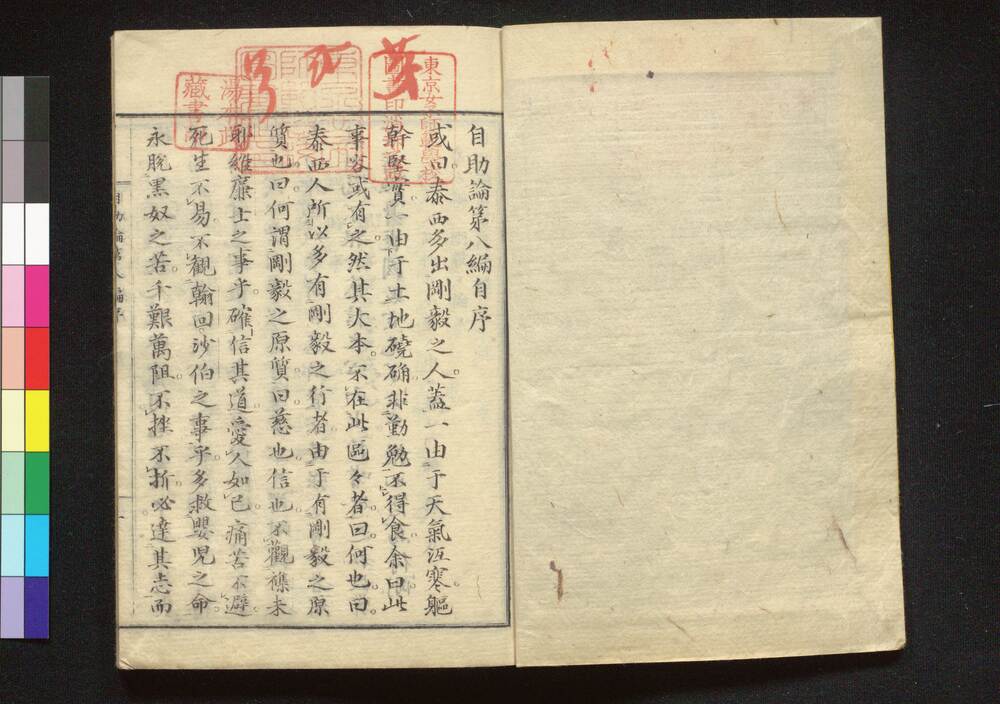 自助論第八編自序
或曰。泰西多出剛毅之人。蓋一由于天氣沍寒。軀
幹堅實。一由于土地磽确。非勤勉不得食。余曰。此
事容或有之。然其大本。不在此區々者。曰。何也。曰。
泰西人所以多有剛毅之行者。由于有剛毅之原
質也。曰。何謂剛毅之原質。曰。慈也。信也。不觀襍未
耶維廉士之事乎。確信其道。愛人如己。痛苦不避。
死生不易。不觀翰回沙伯之事乎。多救嬰兒之命。
永脫黑奴之苦。千艱萬阻。不挫不折。必達其志而
藏書